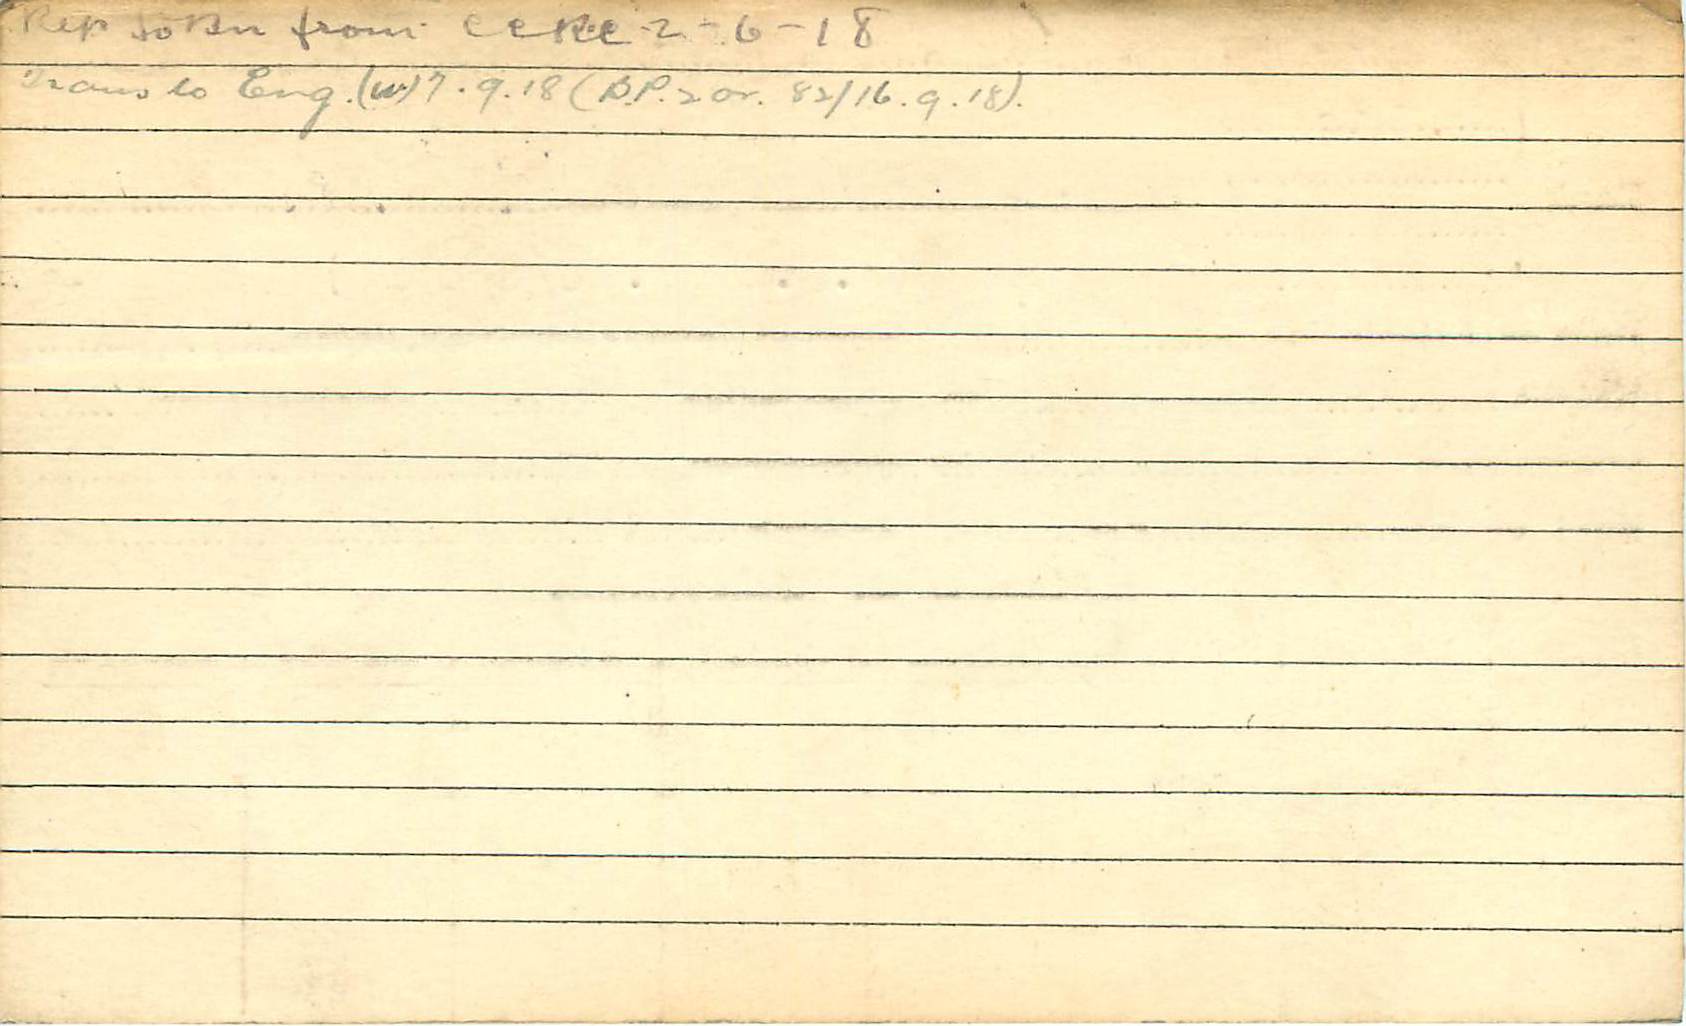 Rep to Bn from CCRC 2-6-18
Trans to Eng. (W) 7.9.18 (B.P.2 or. 82/16.9.18).